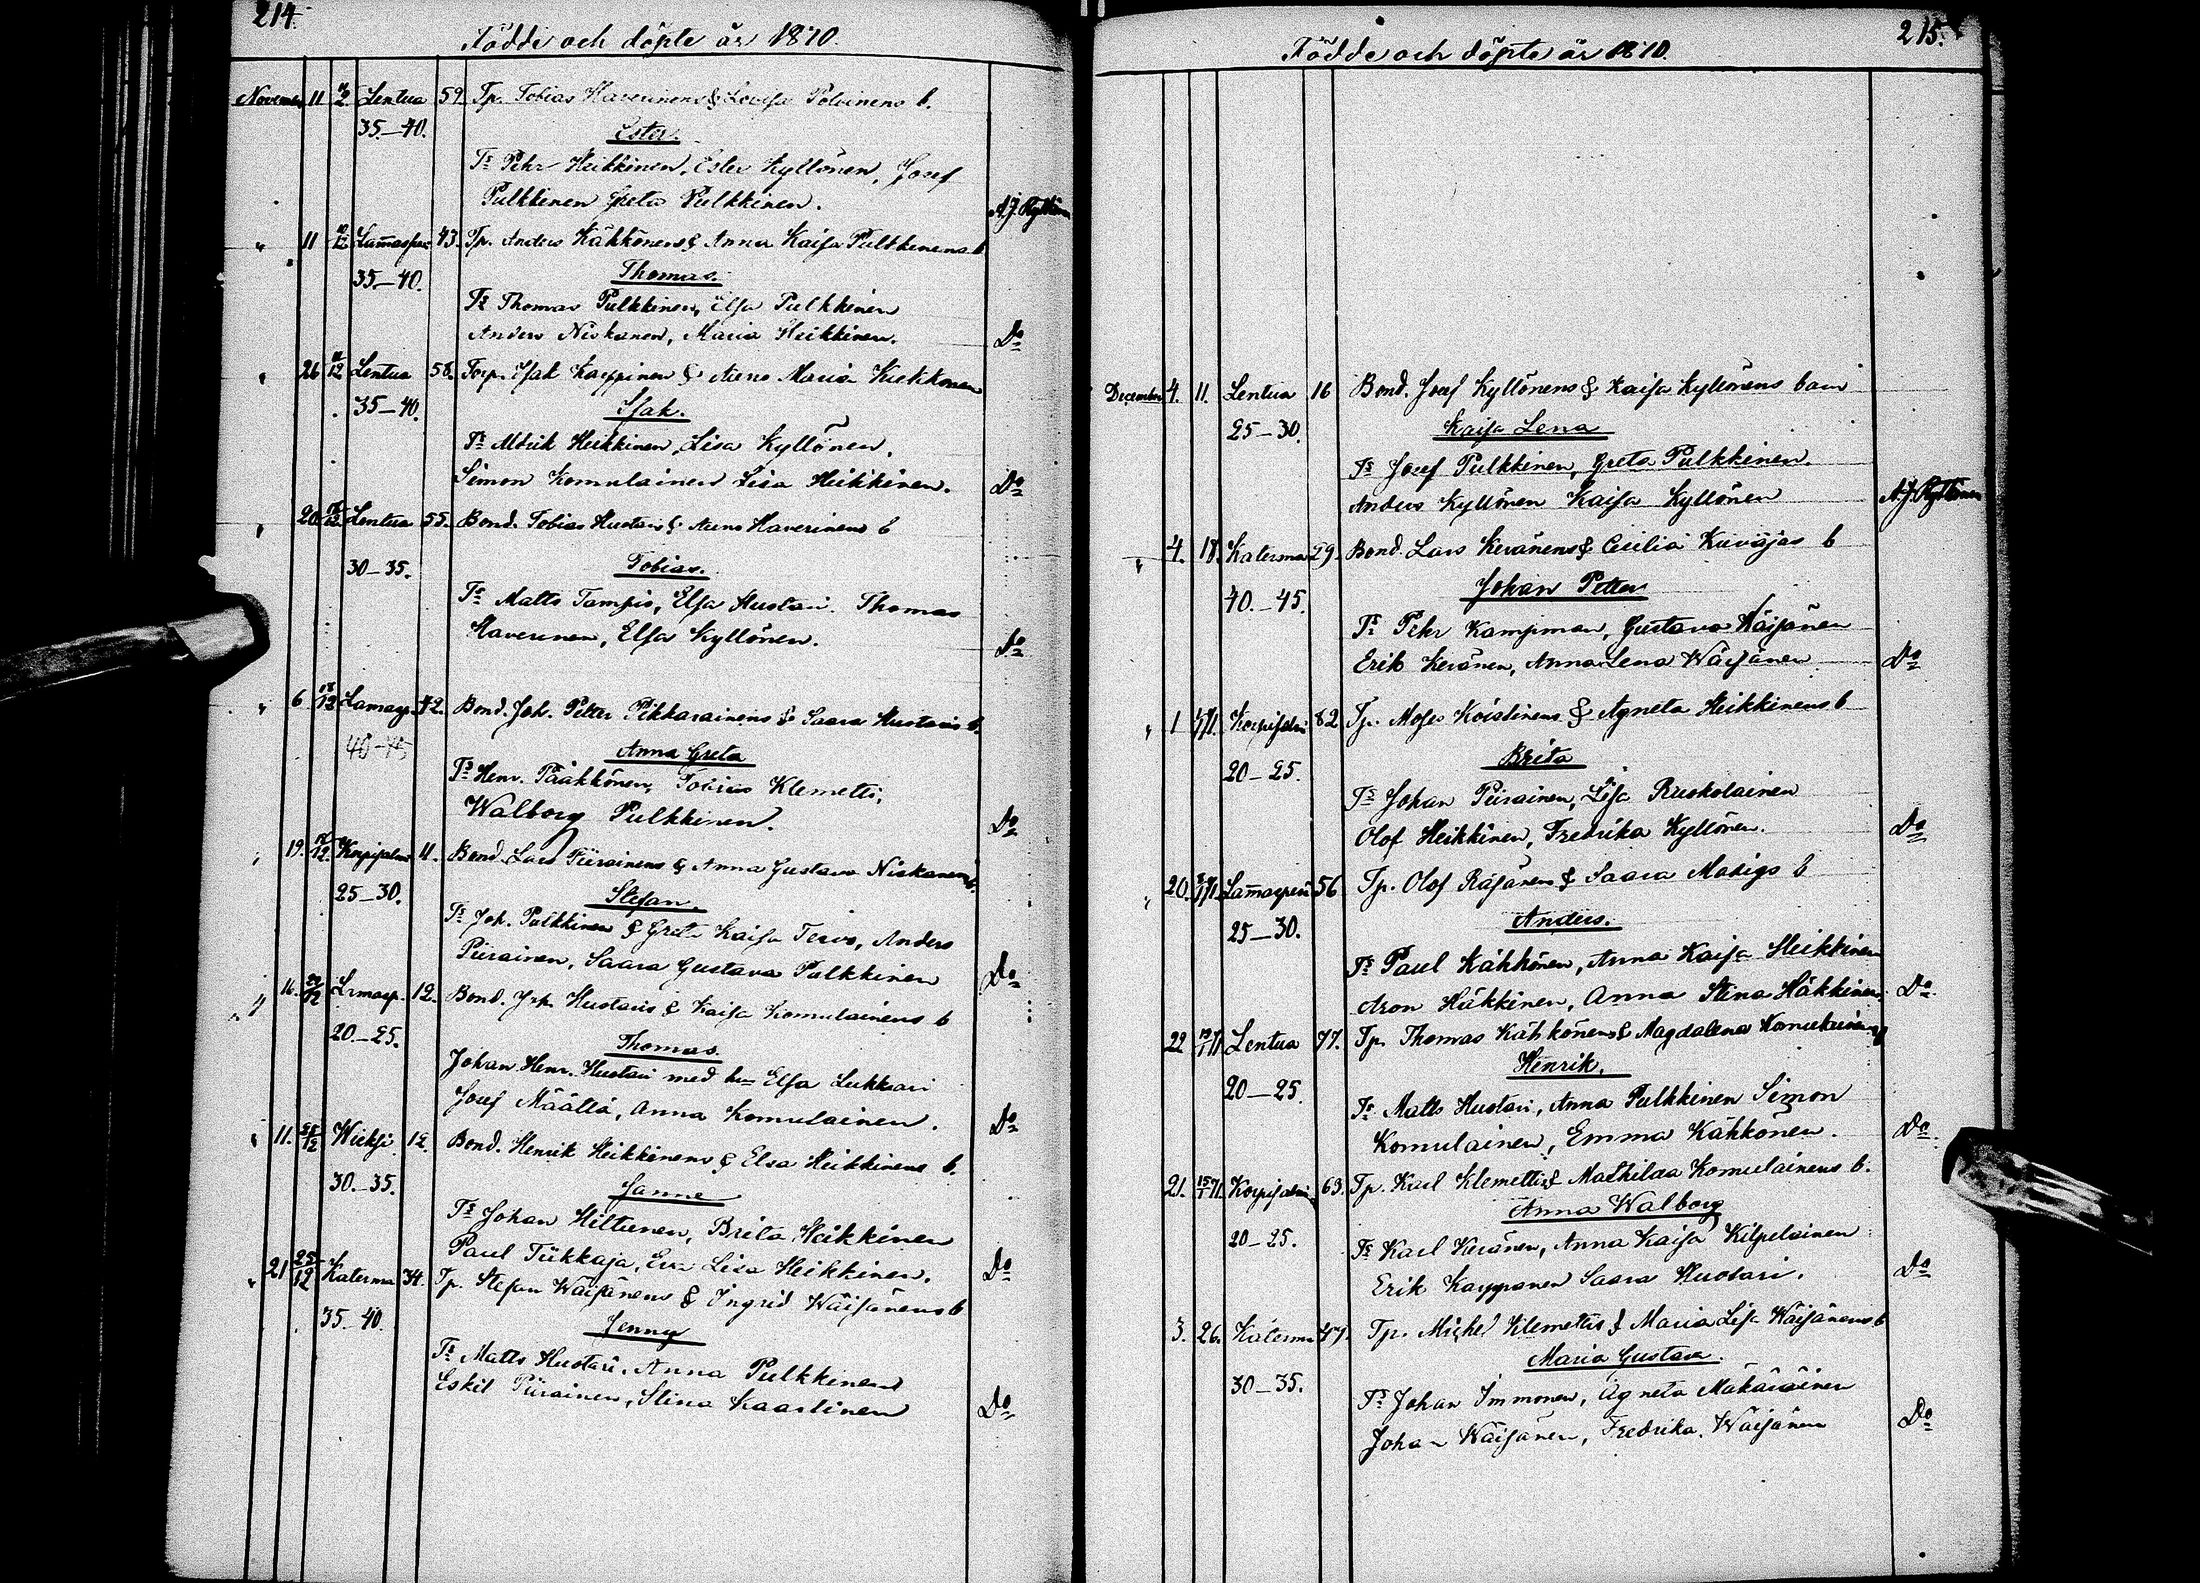 214.
Födde och döpte år 1870.
November 11 Lentua 59 Tp. Tobias Haverinens & Lovisa Polvinens b.
35–40. Ester.
Ts Pehr Heikkinen, Ester Kyllönen, Josef
Pulkkinen Greta Pulkkinen. A.J. Kyllönen
" 11 Lam̄aspää 43. Tp. Anders Kähkönens & Anna Kaisa Pulkkinens b
35–40. Thomas.
Ts Thomas Pulkkinen, Elsa Pulkkinen
Anders Niskanen, Maria Heikkinen. Do
" 26 11/12 Lentua 58. Torp. Isak Karppinen & Anna Maria Kiekkonen
35–40. Isak.
Ts Aldrik Heikkinen, Lisa Kyllönen,
Simon Komulainen Lisa Heikkinen. Do
" 20 Lentua 55. Bond. Tobias Huotaris & Anna Haverinens b
30–35. Tobias.
Ts Matts Tampio, Elsa Huotari. Thomas
Haverinen, Elsa Kyllönen. Do
" 6 18/12 Lamasp. 42. Bond. Joh. Petter Pikkarainens & Saara Huotaris b.
40–45 Anna Greta
Ts Henr. Pääkkönen, Tobias Klemetti,
Walborg Pulkkinen. Do
" 19. 18/12 Korpisalmi 11. Bond. Lars Piirainens & Anna Gustava Niskanens b.
25–30. Stefan.
Ts Joh. Pulkkinen & Greta Kaisa Tervo, Anders
Piirainen, Saara Gustava Pulkkinen Do
" 16. Lamasp. 12. Bond. Joh. Huotaris & Kaisa Komulainens b
20–25. Thomas.
Johan Henr. Huotari med hu Elsa Lukkari
Josef Määttä, Anna Komulainen. Do
" 11. 25/12 Wieksi 12. Bond. Henrik Heikkinens & Elsa Heikkinens b.
30–35. Janne
Ts Johan Hiltunen, Brita Heikkinen
Paul Tükkaja, Eva Lisa Heikkinen. Do
" 21 25/12 Katerma 34. Tp. Stefan Wäisänens & Ingrid Wäisänens b
35–40. Jenny
Ts Matts Huotari, Anna Pulkkinen
Eskil Piirainen, Stina Kaartinen Do
215.
Födde och döpte år 1870.
December 4. 11. Lentua 16 Bond. Josef Kyllönens & Kaisa Kyllönens barn
25–30. Kaisa Lena
Ts Josef Pulkkinen, Greta Pulkkinen.
Anders Kyllönen Kaisa Kyllönen A.J. Kyllönen
" 4. 18. Katerma 29. Bond. Lars Keränens & Cecilia Kuvajas b
40.–45. Johan Petter
Ts Pehr Kampman, Gustava Wäisänen
Erik Keränen, Anna Lena Wäisänen Do
" 1 Korpisalmi 82 Tp. Moses Koistinens & Agneta Heikkinens b
20–25. Brita
Ts Johan Piirainen, Lisa Ruokolainen
Olof Heikkinen, Fredrika Kyllönen. Do
" 20. Lam̄aspää 56 Tp. Olof Räisänens & Saara Matigs b
25–30. Anders.
Ts Paul Kähkönen, Anna Kaisa Heikkinen
Aron Häkkinen, Anna Stina Häkkinen. Do
22 Lentua 77. Tp. Thomas Kähkönens & Magdalena Komulainens b
20–25. Henrik.
Ts Matts Huotari, Anna Pulkkinen Simon
Komulainen, Emma Kähkönen. Do
21. 15/1 71. Korpisalmi 63. Tp. Karl Klemettis & Mathilda Komulainens b.
20–25. Anna Walborg
Ts Karl Keränen, Anna Kaisa Kilpeläinen
Erik Karppanen Saara Huotari. Do
3. 26. Katerma 47. Tp. Michel Klemettis & Maria Lisa Wäisänens b
30–35. Maria Gustava.
Ts Johan Immonen, Agneta Makäräinen
Johan Wäisänen, Fredrika Wäisänen Do